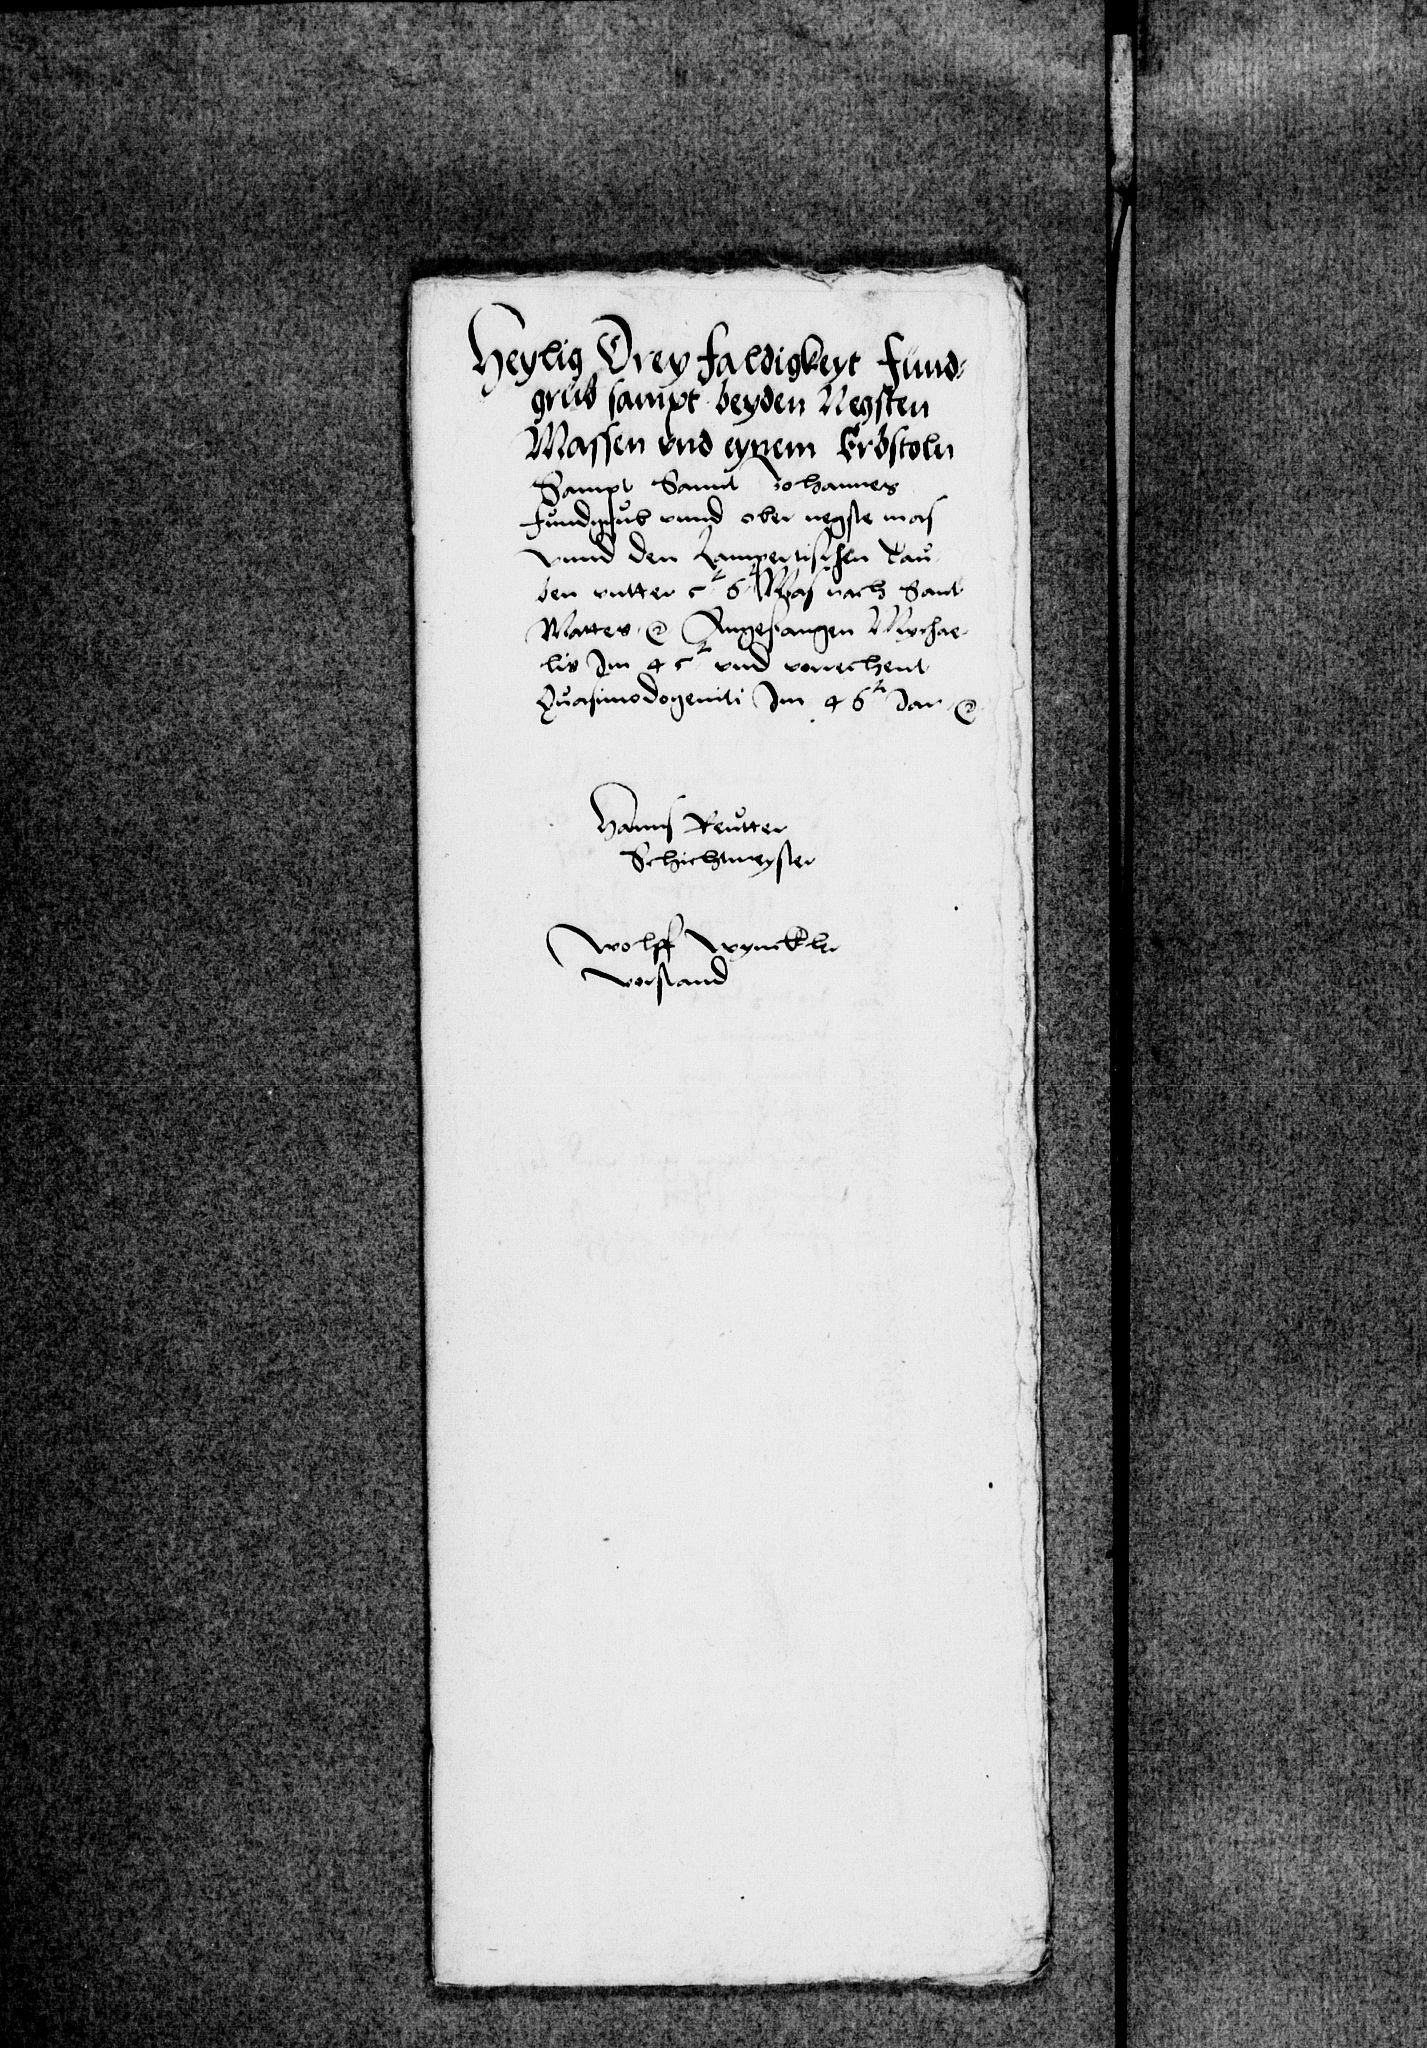 Heylig Dreyfaldigkeyt Fund-
grub sampt beyden Negsten
Massen vnd eynem Erbstoln
Sampt Sannt Johannes
fundgrub vnnd ober negste mas
vnnd den Lampertischen
den vntter 5t 6t Mas nach Sant
Mattes Angefangen Mychae-
lis Im 45t vnd vorrechent
Quasimodogeniti Im 46t Jar
Hanns Reutter
Schichtmeyster
Wolff Wynckler
vorstand